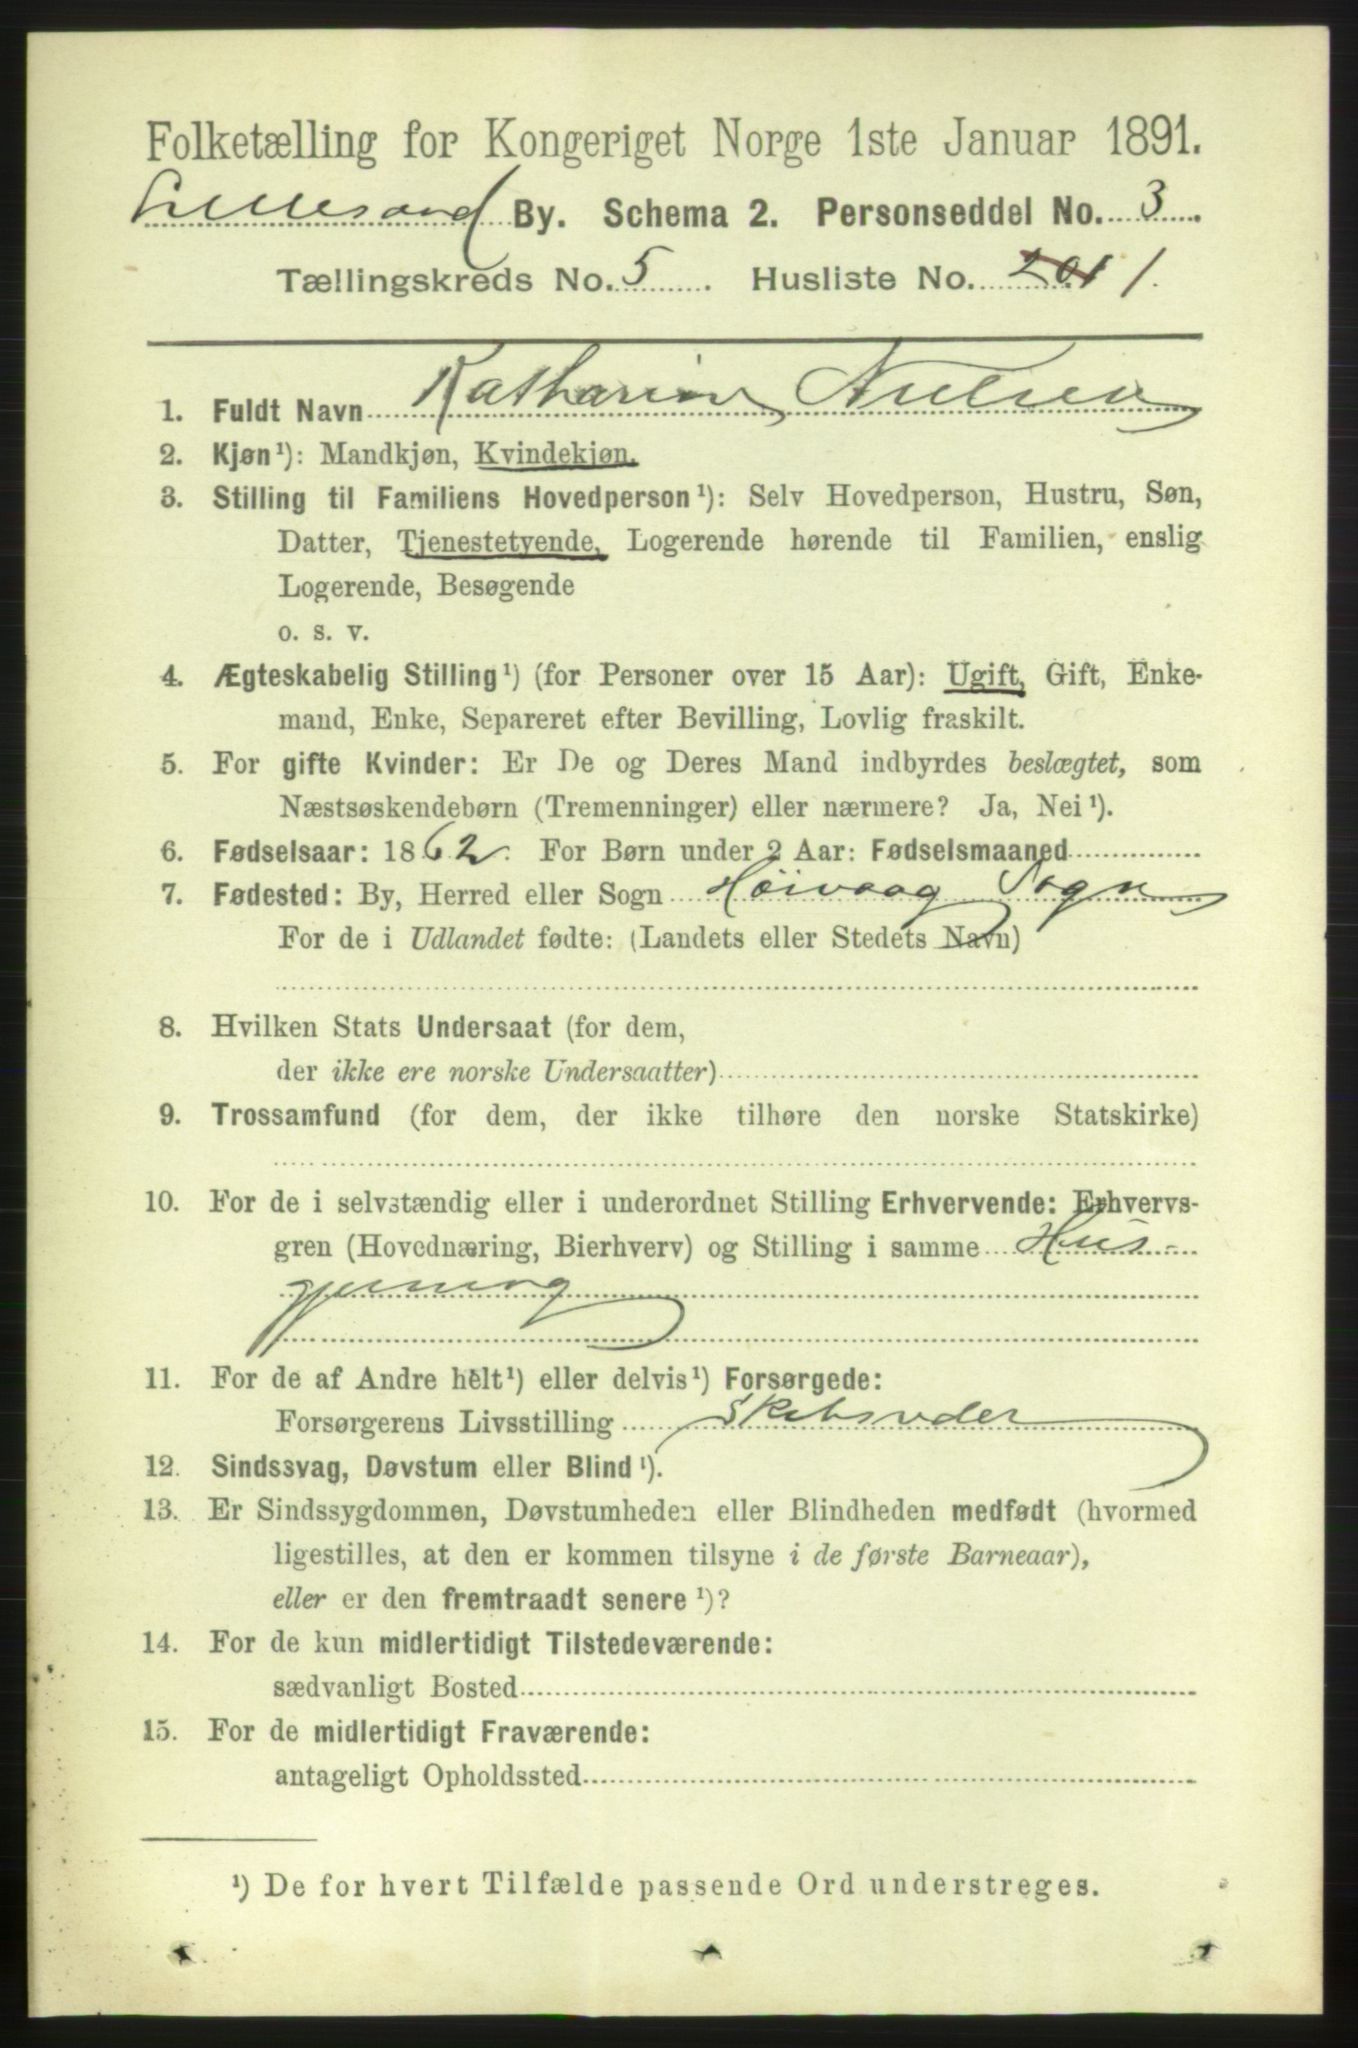 Folketælling for Kongeriget Norge 1ste Januar 1891.
Lillesand By. Schema 2. Personseddel No. 3.
Tællingskreds No. 5. Husliste No. 201 1.
1. Fuldt Navn Katharine Nielsen
2. Kjøn¹): Mandkjøn, Kvindekjøn.
3. Stilling til Familiens Hovedperson¹): Selv Hovedperson, Hustru, Søn,
Datter, Tjenestetyende, Logerende hørende til Familien, enslig
Logerende, Besøgende
o. s. v.
4. Ægteskabelig Stilling¹) (for Personer over 15 Aar): Ugift, Gift, Enke-
mand, Enke, Separeret efter Bevilling, Lovlig fraskilt.
5. For gifte Kvinder: Er De og Deres Mand indbyrdes beslægtet, som
Næstsøskendebørn (Tremenninger) eller nærmere? Ja, Nei¹).
6. Fødselsaar: 1862. For Børn under 2 Aar: Fødselsmaaned
7. Fødested: By, Herred eller Sogn Høivaag Sogn
For de i Udlandet fødte: (Landets eller Stedets Navn)
8. Hvilken Stats Undersaat (for dem,
der ikke ere norske Undersaatter)
9. Trossamfund (for dem, der ikke tilhøre den norske Statskirke)
10. For de i selvstændig eller i underordnet Stilling Erhvervende: Erhvervs-
gren (Hovednæring, Bierhverv) og Stilling i samme Hus-
gjerning
11. For de af Andre helt¹) eller delvis¹) Forsørgede:
Forsørgerens Livsstilling Skibsreder
12. Sindssvag, Døvstum eller Blind¹).
13. Er Sindssygdommen, Døvstumheden eller Blindheden medfødt (hvormed
ligestilles, at den er kommen tilsyne i de første Barneaar),
eller er den fremtraadt senere¹)?
14. For de kun midlertidigt Tilstedeværende:
sædvanligt Bosted
15. For de midlertidigt Fraværende:
antageligt Opholdssted
¹) De for hvert Tilfælde passende Ord understreges.